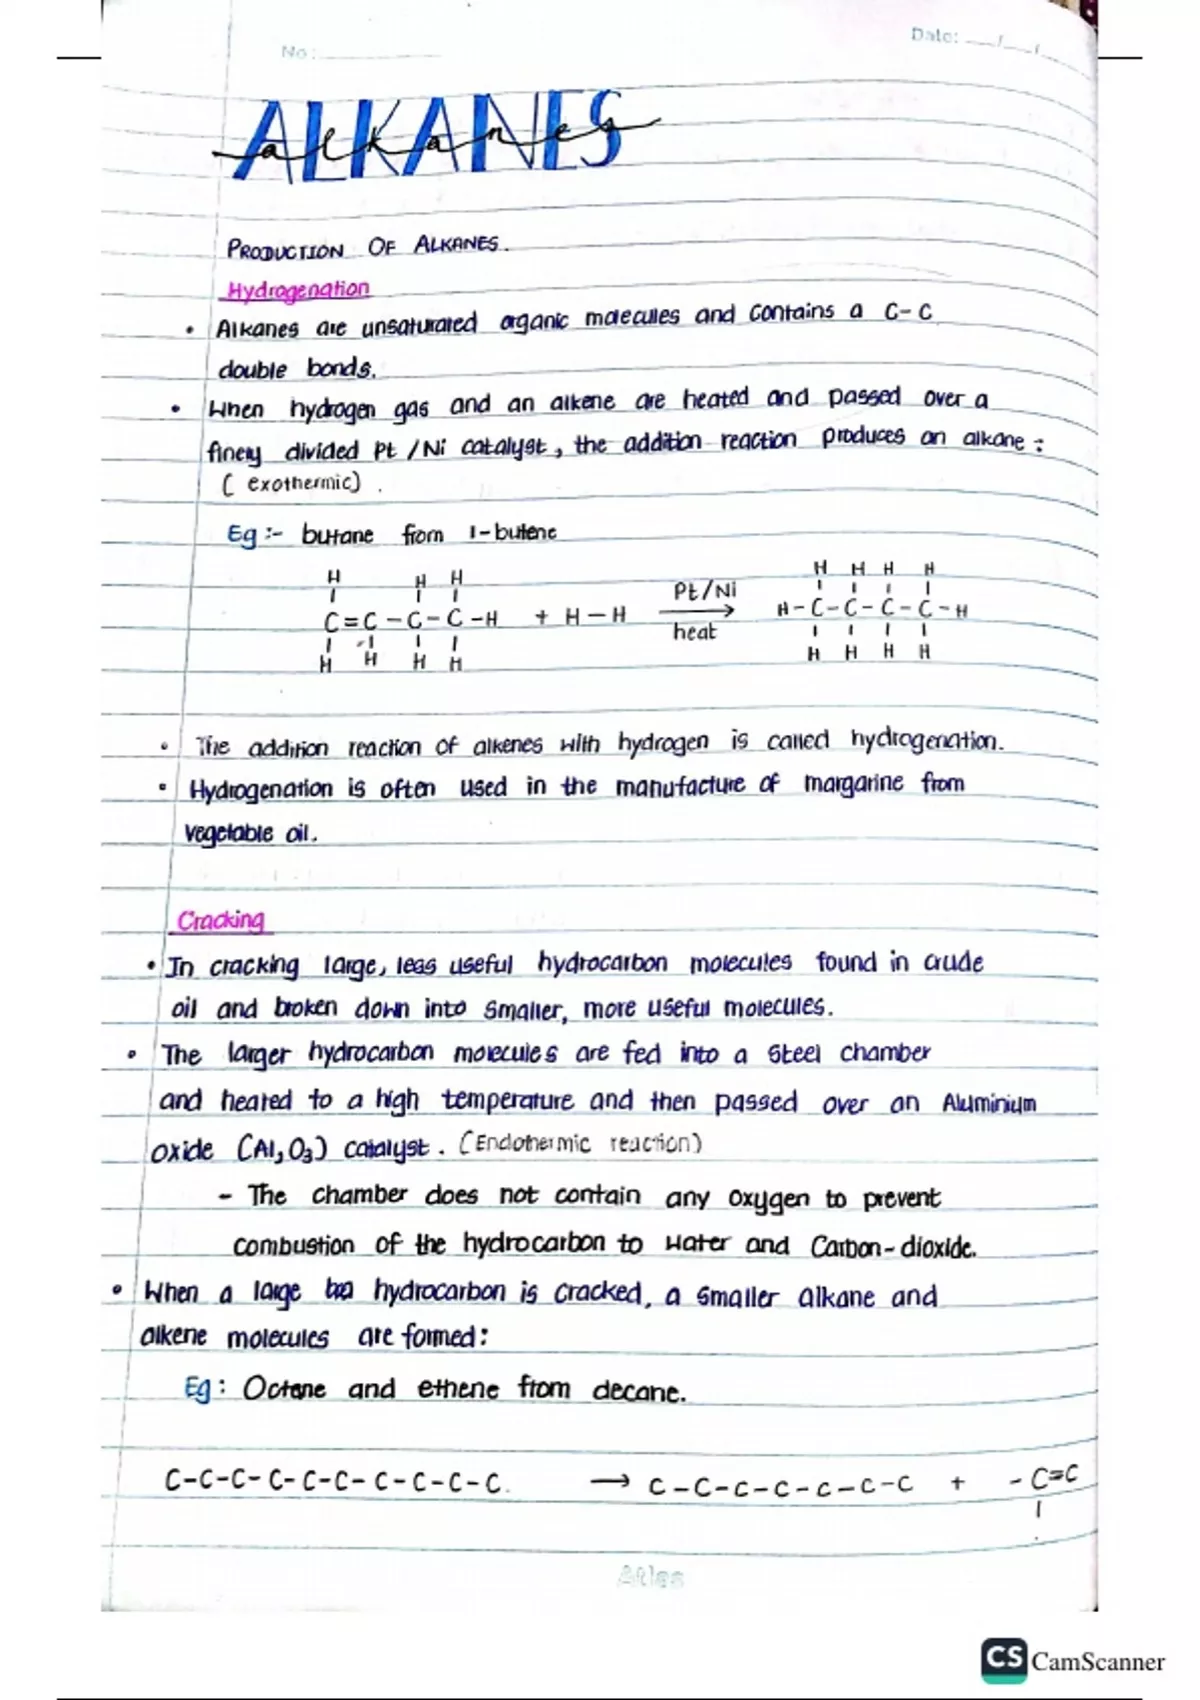 No:
Date: __/__/
ALKANES
alkanes
PRODUCTION OF ALKANES.
Hydrogenation
• Alkanes are unsaturated organic molecules and contains a C-C
double bonds.
• When hydrogen gas and an alkene are heated and passed over a
finely divided Pt /Ni catalyst, the addition reaction produces an alkane:
(exothermic).
Eg:- butane from 1-butene
H H H Pt/Ni H H H H
C=C-C-C-H + H-H → H-C-C-C-C-H
H H H H heat H H H H
• The addition reaction of alkenes with hydrogen is called hydrogenation.
• Hydrogenation is often used in the manufacture of margarine from
vegetable oil.
Cracking
• In cracking large, less useful hydrocarbon molecules found in crude
oil and broken down into smaller, more useful molecules.
• The larger hydrocarbon molecules are fed into a steel chamber
and heated to a high temperature and then passed over an Aluminium
oxide (Al₂O₃) catalyst. (Endothermic reaction)
- The chamber does not contain any oxygen to prevent
combustion of the hydrocarbon to water and Carbon-dioxide.
• When a large hydrocarbon is cracked, a smaller alkane and
alkene molecules are formed:
Eg: Octane and ethene from decane.
C-C-C-C-C-C-C-C-C-C. → C-C-C-C-C-C-C + -C=C
Atlas
CS CamScanner